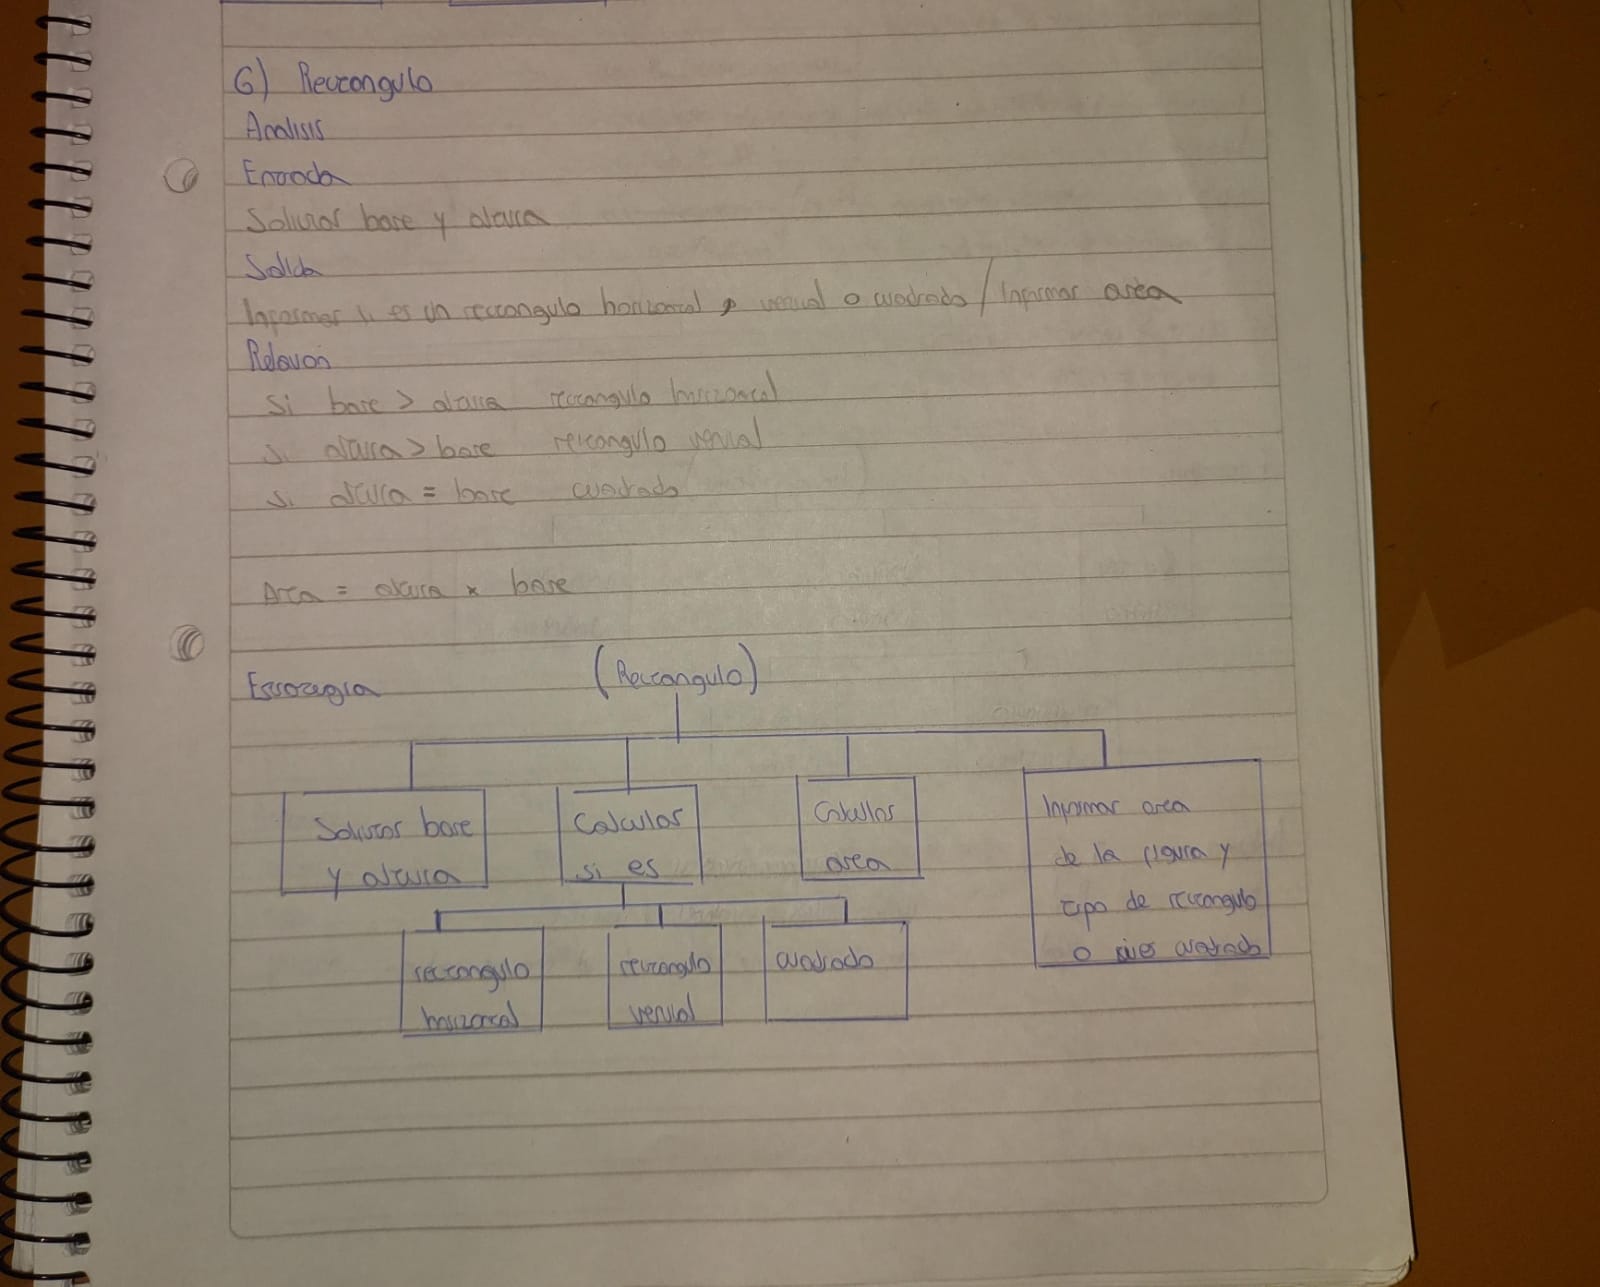 6) Rectangulo
Analisis
Entrada
Solicitar base y altura
Salida
Informar si es un rectangulo horizontal, vertical o cuadrado / Informar area
Relacion
Si base > altura rectangulo horizontal
si altura > base rectangulo vertical
si altura = base cuadrado
Area = altura x base
Estrategia
(Rectangulo)
Solicitar base
y altura
Calcular
si es
Calcular
area
Informar area
de la figura y
tipo de rectangulo
o si es cuadrado
rectangulo
horizontal
rectangulo
vertical
cuadrado